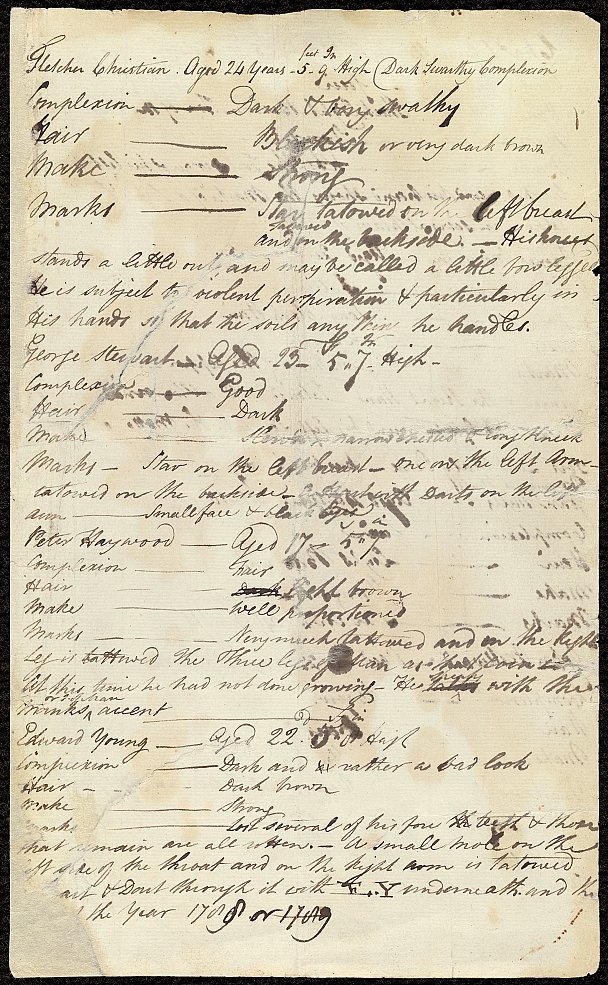 Fletcher Christian. Aged 24 Years - 5. 9. High (Dark Swarthy Complexion
feet In
Complexion Dark & very swathy
Hair Blackish or very dark brown
Make Strong
Marks Star tatowed on the left breast
tatowed
and on the backside. - His knees
stands a little out and may be called a little bow legged
He is subject to violent perspiration & particularly in
His hands so that he soils any thing he handles.
George Stewart Aged 23 - 5. 7. High -
Complexion Good
Hair Dark
Make Slender narrow chested & long Neck
Marks - Star on the left breast - one on the left Arm -
tatowed on the backside - Darts on the left
arm - small face & black Eyes
Peter Haywood - Aged 17 - 5. 7
Complexion - Fair
Hair Dark light brown
Make well proportioned
Marks - Very much tattowed and on the Right
Leg is tattowed the Three legs of Man as the coin -
At this time he had not done growing - He with the
Manks accent
Edward Young - Aged 22. 5. High
Complexion Dark and rather a bad look
Hair - Dark brown
Make Strong
Marks Lost several of his fore teeth & those
that remain are all rotten. - A small mole on the
left side of the throat and on the right arm is tatowed
& Dart through it with E.Y underneath and the
the Year 1788 or 1789